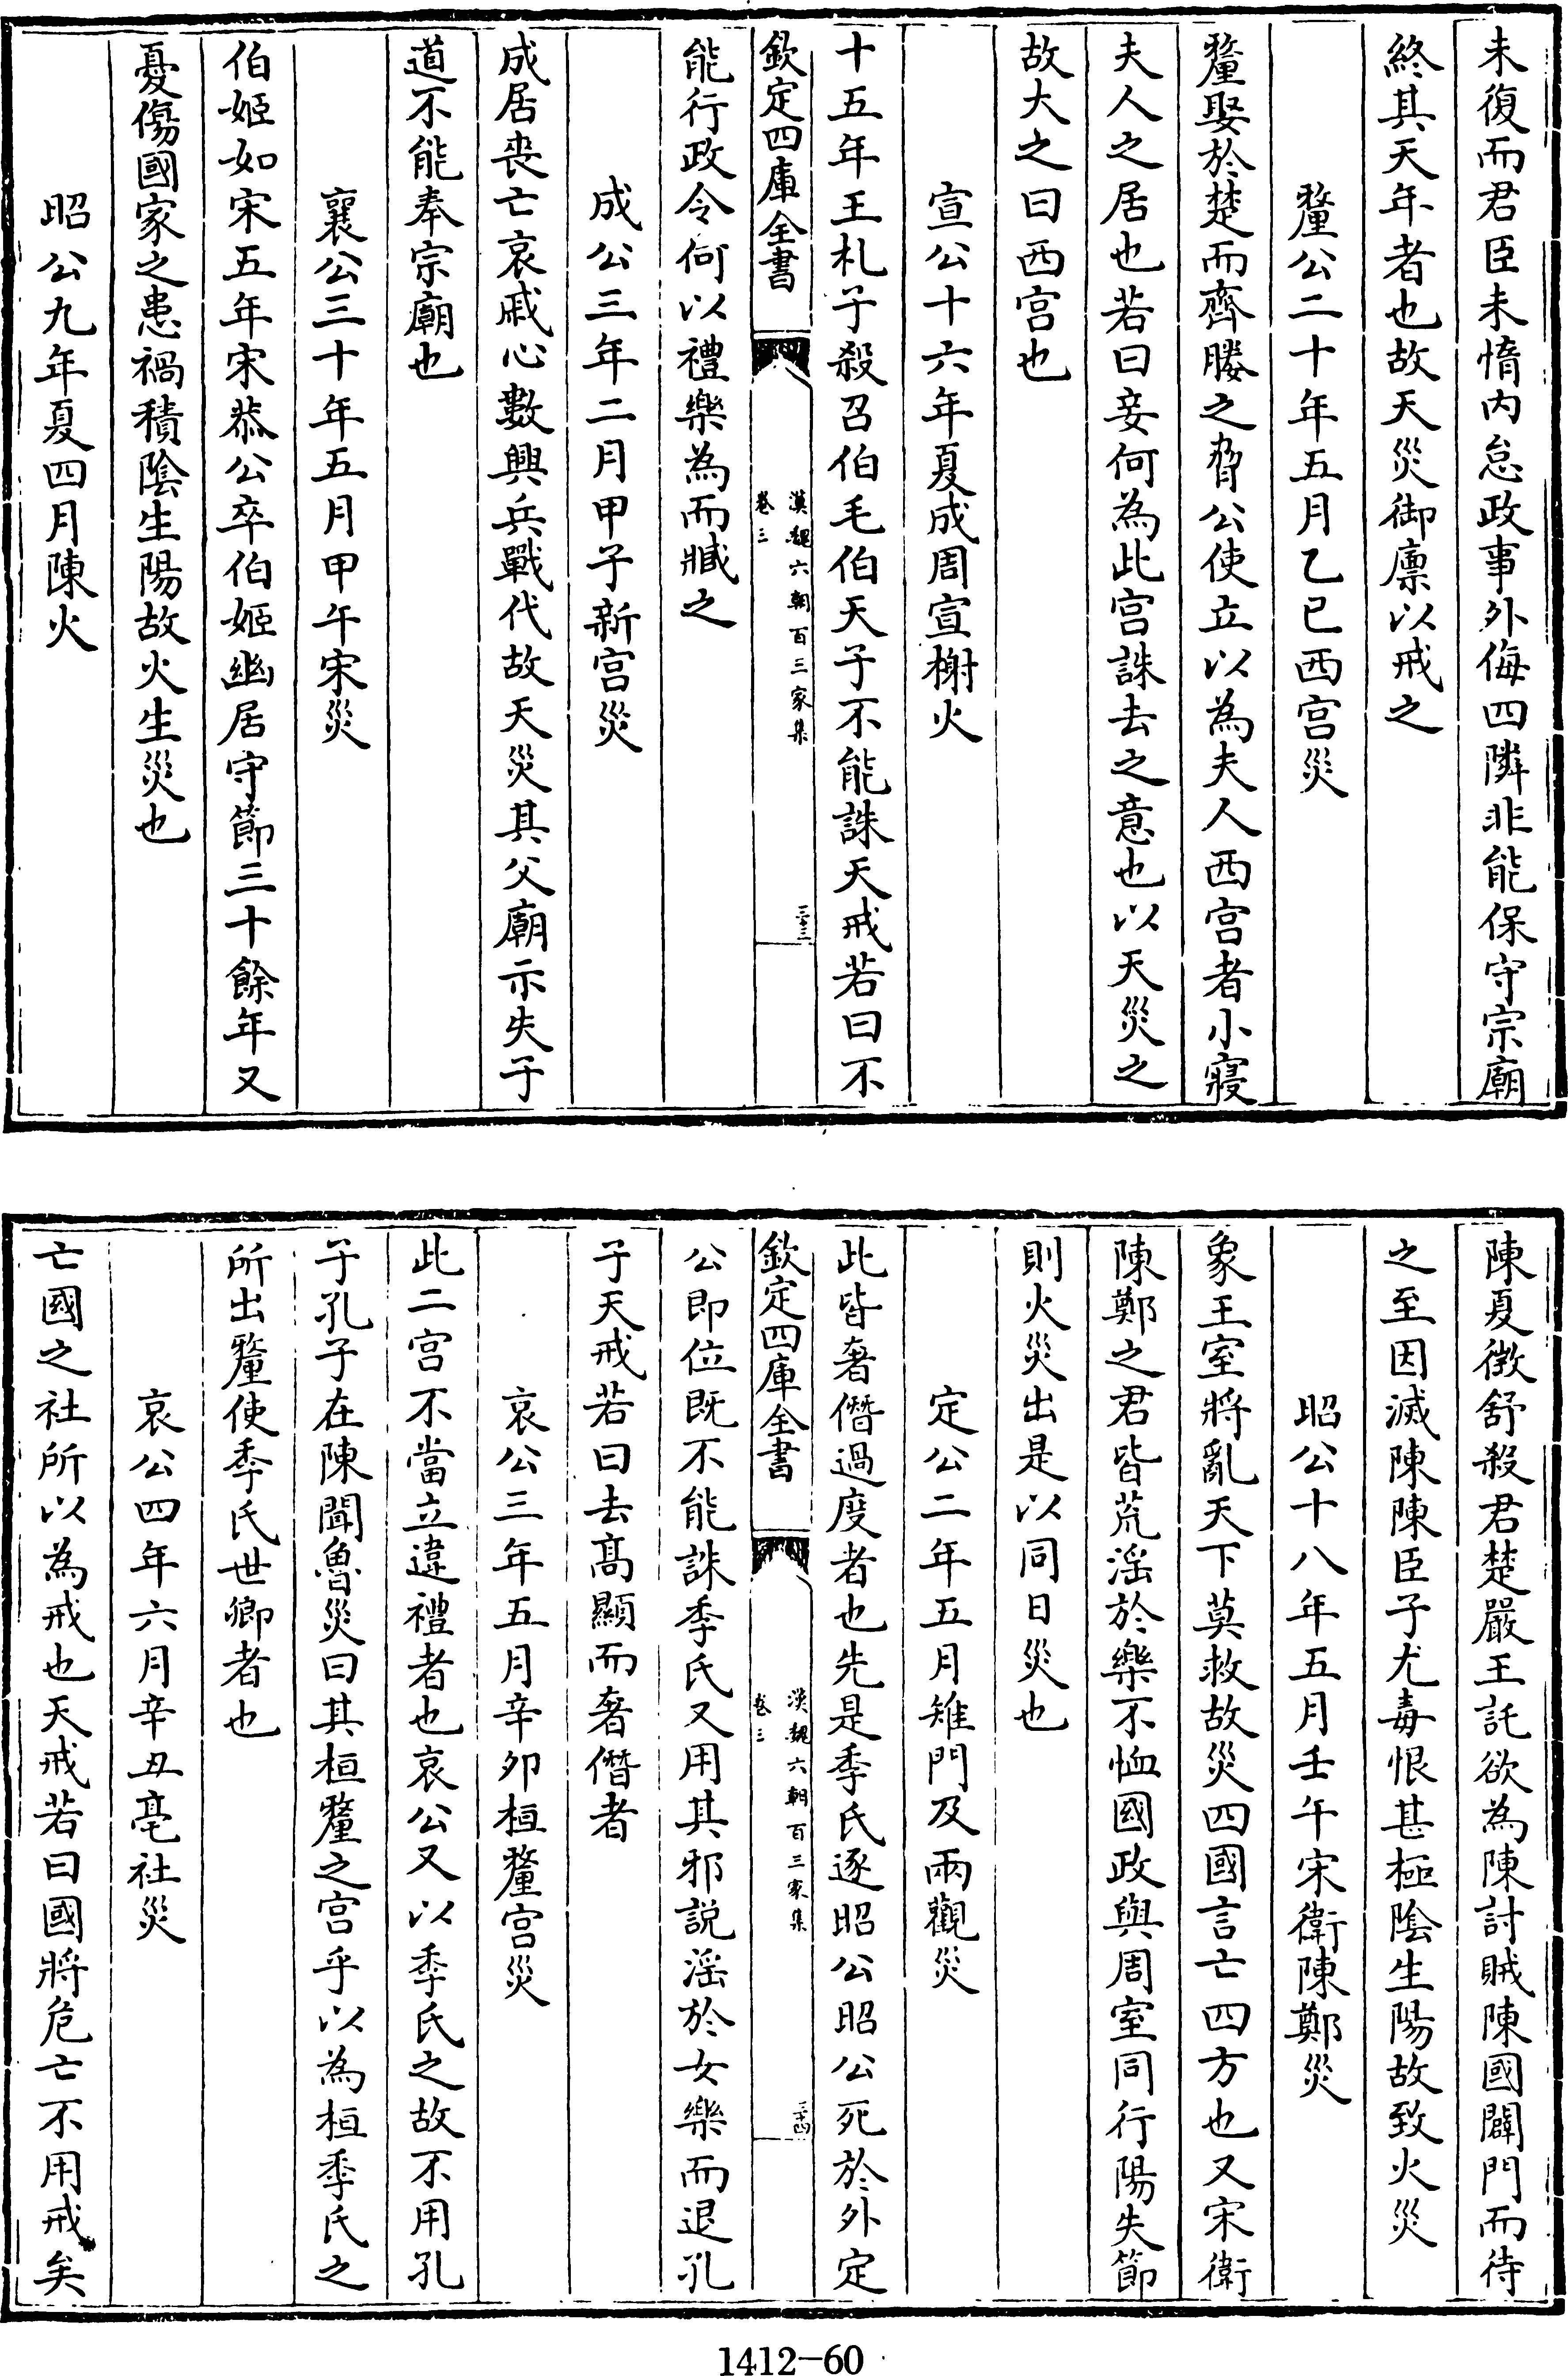 未復而君臣未惰内怠政事外侮四隣非能保守宗廟
終其天年者也故天災御廪以戒之
釐公二十年五月乙巳西宫災
釐娶於楚而齊媵之脅公使立以為夫人西宫者小寢
夫人之居也若曰妾何為此宫誅去之意也以天災之
故大之曰西宫也
宣公十六年夏成周宣榭火
十五年王札子殺召伯毛伯天子不能誅天戒若曰不
欽定四庫全書
漢魏六朝百三家集
卷三
三十三
能行政令何以禮樂為而臧之
成公三年二月甲子新宫災
成居喪亡哀戚心數興兵戰代故天災其父廟示失子
道不能奉宗廟也
襄公三十年五月甲午宋災
伯姬如宋五年宋恭公卒伯姬幽居守節三十餘年又
憂傷國家之患禍積陰生陽故火生災也
昭公九年夏四月陳火
陳夏徴舒殺君楚嚴王託欲為陳討賊陳國闢門而待
之至因滅陳陳臣子尤毒恨甚極陰生陽故致火災
昭公十八年五月壬午宋衛陳鄭災
象王室將亂天下莫救故災四國言亡四方也又宋衛
陳鄭之君皆荒滛於樂不恤國政與周室同行陽失節
則火災出是以同日災也
定公二年五月雉門及兩觀災
此皆奢僭過度者也先是季氏逐昭公昭公死於外定
欽定四庫全書
漢魏六朝百三家集
卷三
三十四
公即位既不能誅季氏又用其邪説滛於女樂而退孔
子天戒若曰去髙顯而奢僭者
哀公三年五月辛卯桓釐宫災
此二宫不當立違禮者也哀公又以季氏之故不用孔
子孔子在陳聞魯災曰其桓釐之宫乎以為桓季氏之
所出釐使季氏世卿者也
哀公四年六月辛丑亳社災
亡國之社所以為戒也天戒若曰國將危亡不用戒矣
1412-60